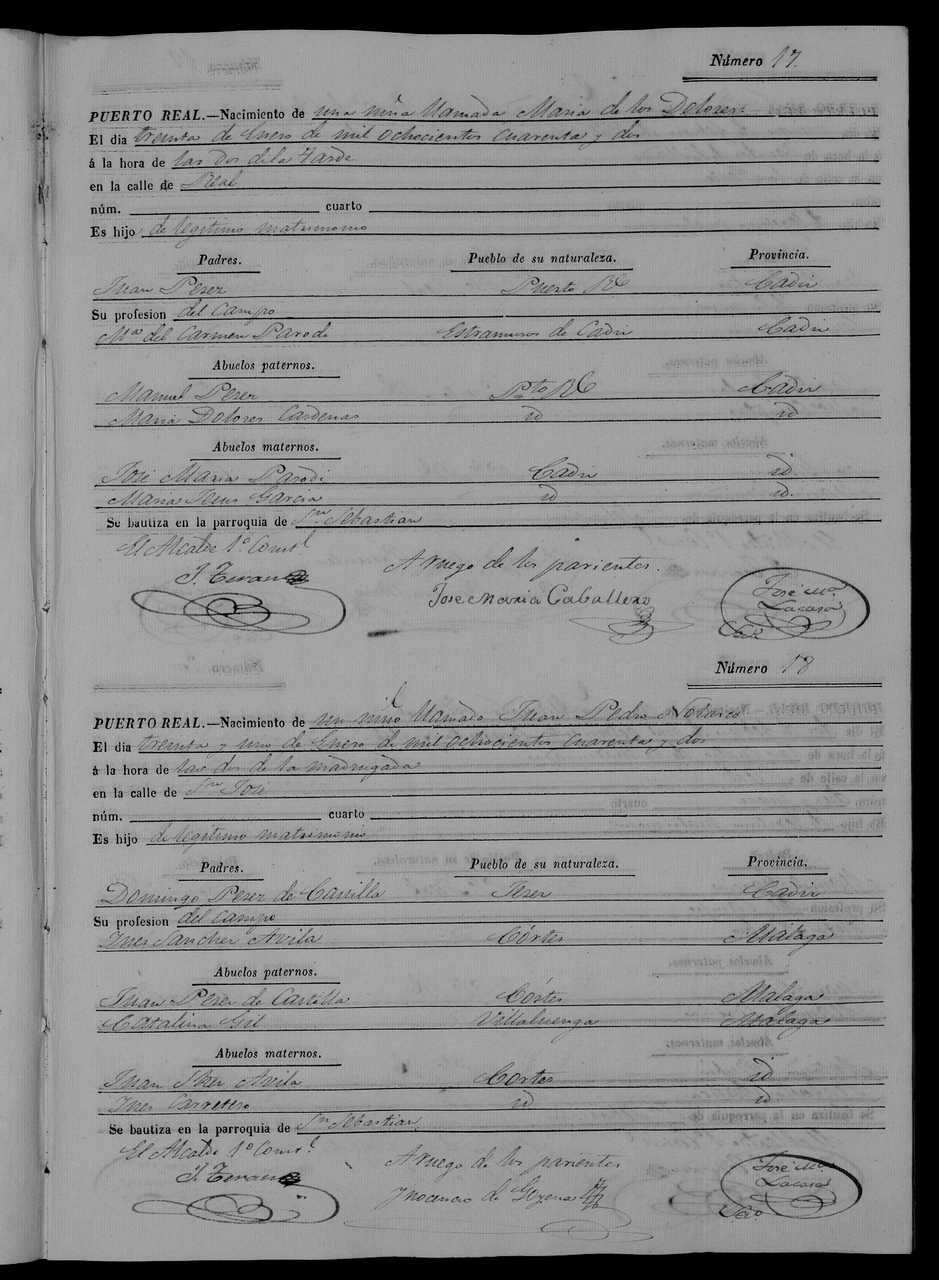 Número 17.
PUERTO REAL.—Nacimiento de una niña llamada Maria de los Dolores
El dia treinta de Enero de mil ochocientos cuarenta y dos
á la hora de las dos de la tarde
en la calle de Real
núm. cuarto
Es hijo de legitimo matrimonio
Padres. Pueblo de su naturaleza. Provincia.
Juan Perez Puerto Rl Cadiz
Su profesion del Campo
Mª del Carmen Parodi Estramuros de Cadiz Cadiz
Abuelos paternos.
Manuel Perez Pto Rl Cadiz
Maria Dolores Cardenas id id
Abuelos maternos.
José Maria Parodi Cadiz id.
Maria Garcia id id.
Se bautiza en la parroquia de Sn Sebastian
El Alcalde 1º Consl
J. Teran
A ruego de los parientes.
José Maria Caballero
José Mª
Lacasa
Número 18
PUERTO REAL.—Nacimiento de un niño llamado Juan Pedro Nolasco
El dia treinta y uno de Enero de mil ochocientos cuarenta y dos
á la hora de las dos de la madrugada
en la calle de Sn José
núm. cuarto
Es hijo de legitimo matrimonio
Padres. Pueblo de su naturaleza. Provincia.
Domingo Perez de Castilla Jerez Cadiz
Su profesion del campo
Ines Sanchez Avila Córtes Málaga
Abuelos paternos.
Juan Perez de Castilla Córtes Malaga
Catalina Gil Villaluenga Malaga
Abuelos maternos.
Juan Shez Avila Cortes id
Ines Carretero id id
Se bautiza en la parroquia de Sn Sebastian
El Alcalde 1º Consl
J. Teran
A ruego de los parientes
Inocencio de
José Mª
Lacasa
Srio